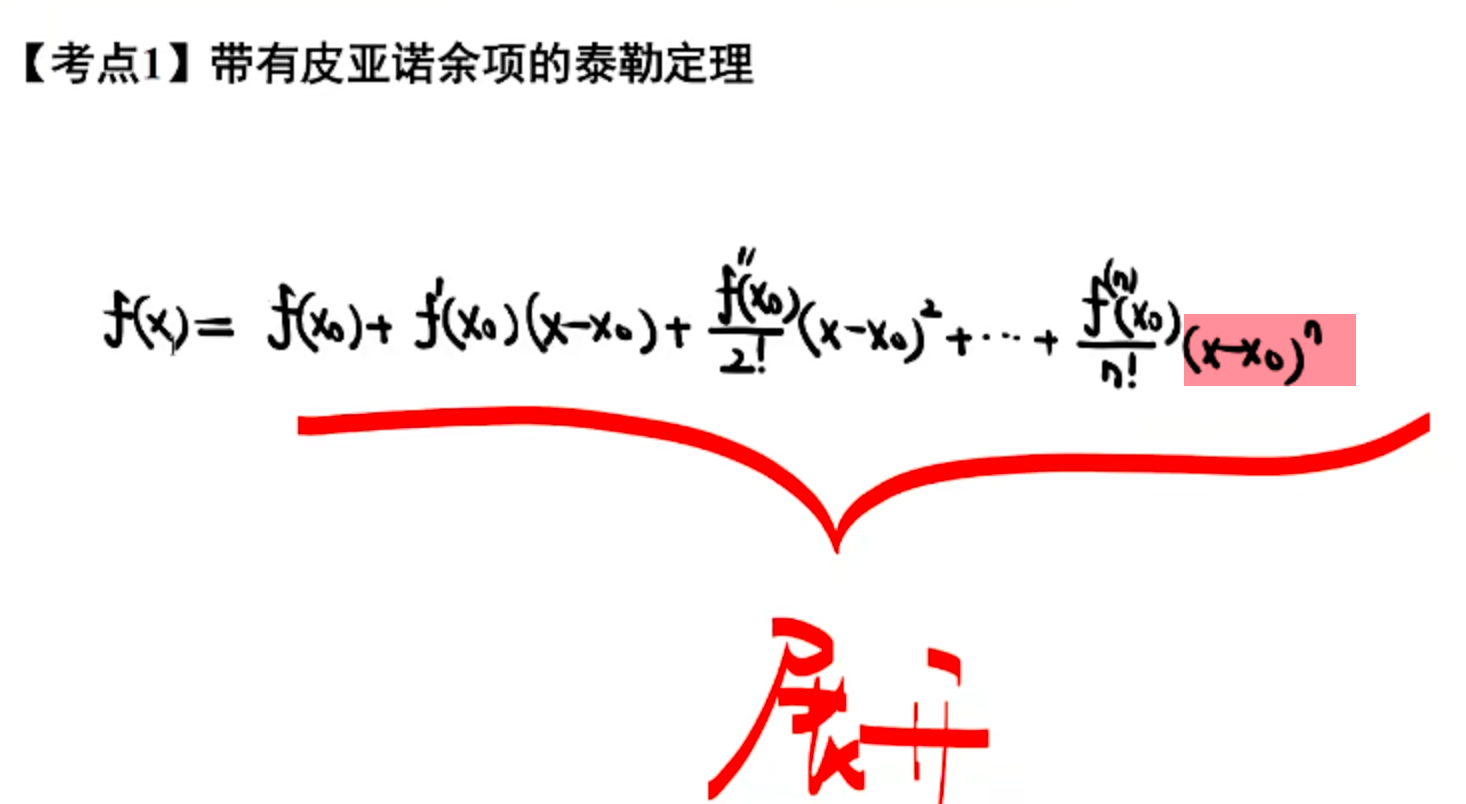 【考点1】带有皮亚诺余项的泰勒定理
f(x)= f(x₀)+ f'(x₀)(x-x₀)+ f''(x₀)/2! (x-x₀)²+⋯+ f⁽ⁿ⁾(x₀)/n! (x-x₀)ⁿ
展开